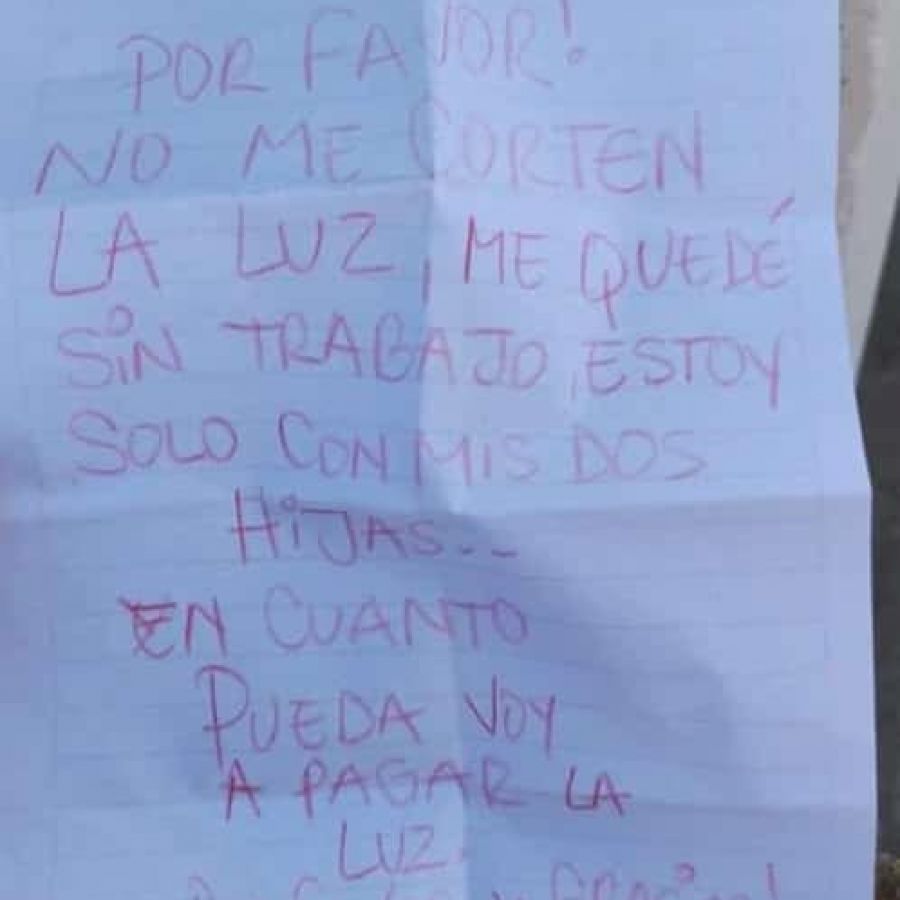 POR FAVOR!
NO ME CORTEN
LA LUZ, ME QUEDÉ
SIN TRABAJO, ESTOY
SOLO CON MIS DOS
HIJAS...
EN CUANTO
PUEDA VOY
A PAGAR LA
LUZ.